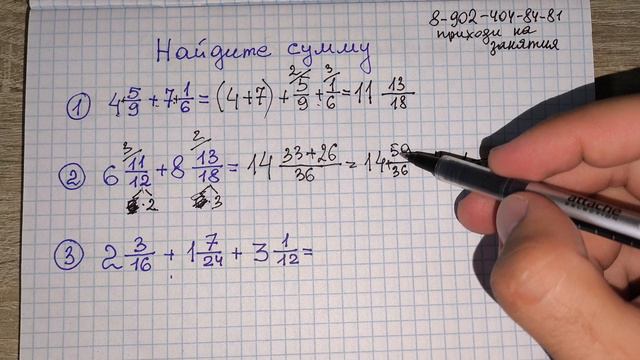 8-902-404-84-81
приходи на
занятия
Найдите сумму
① 4+5/9 + 7+1/6 = (4+7) + 5/9 + 1/6 = 11 13/18
② 6 11/12 + 8 13/18 = 14 33+26/36 = 14+59/36
③ 2 3/16 + 1 7/24 + 3 1/12 =
attache